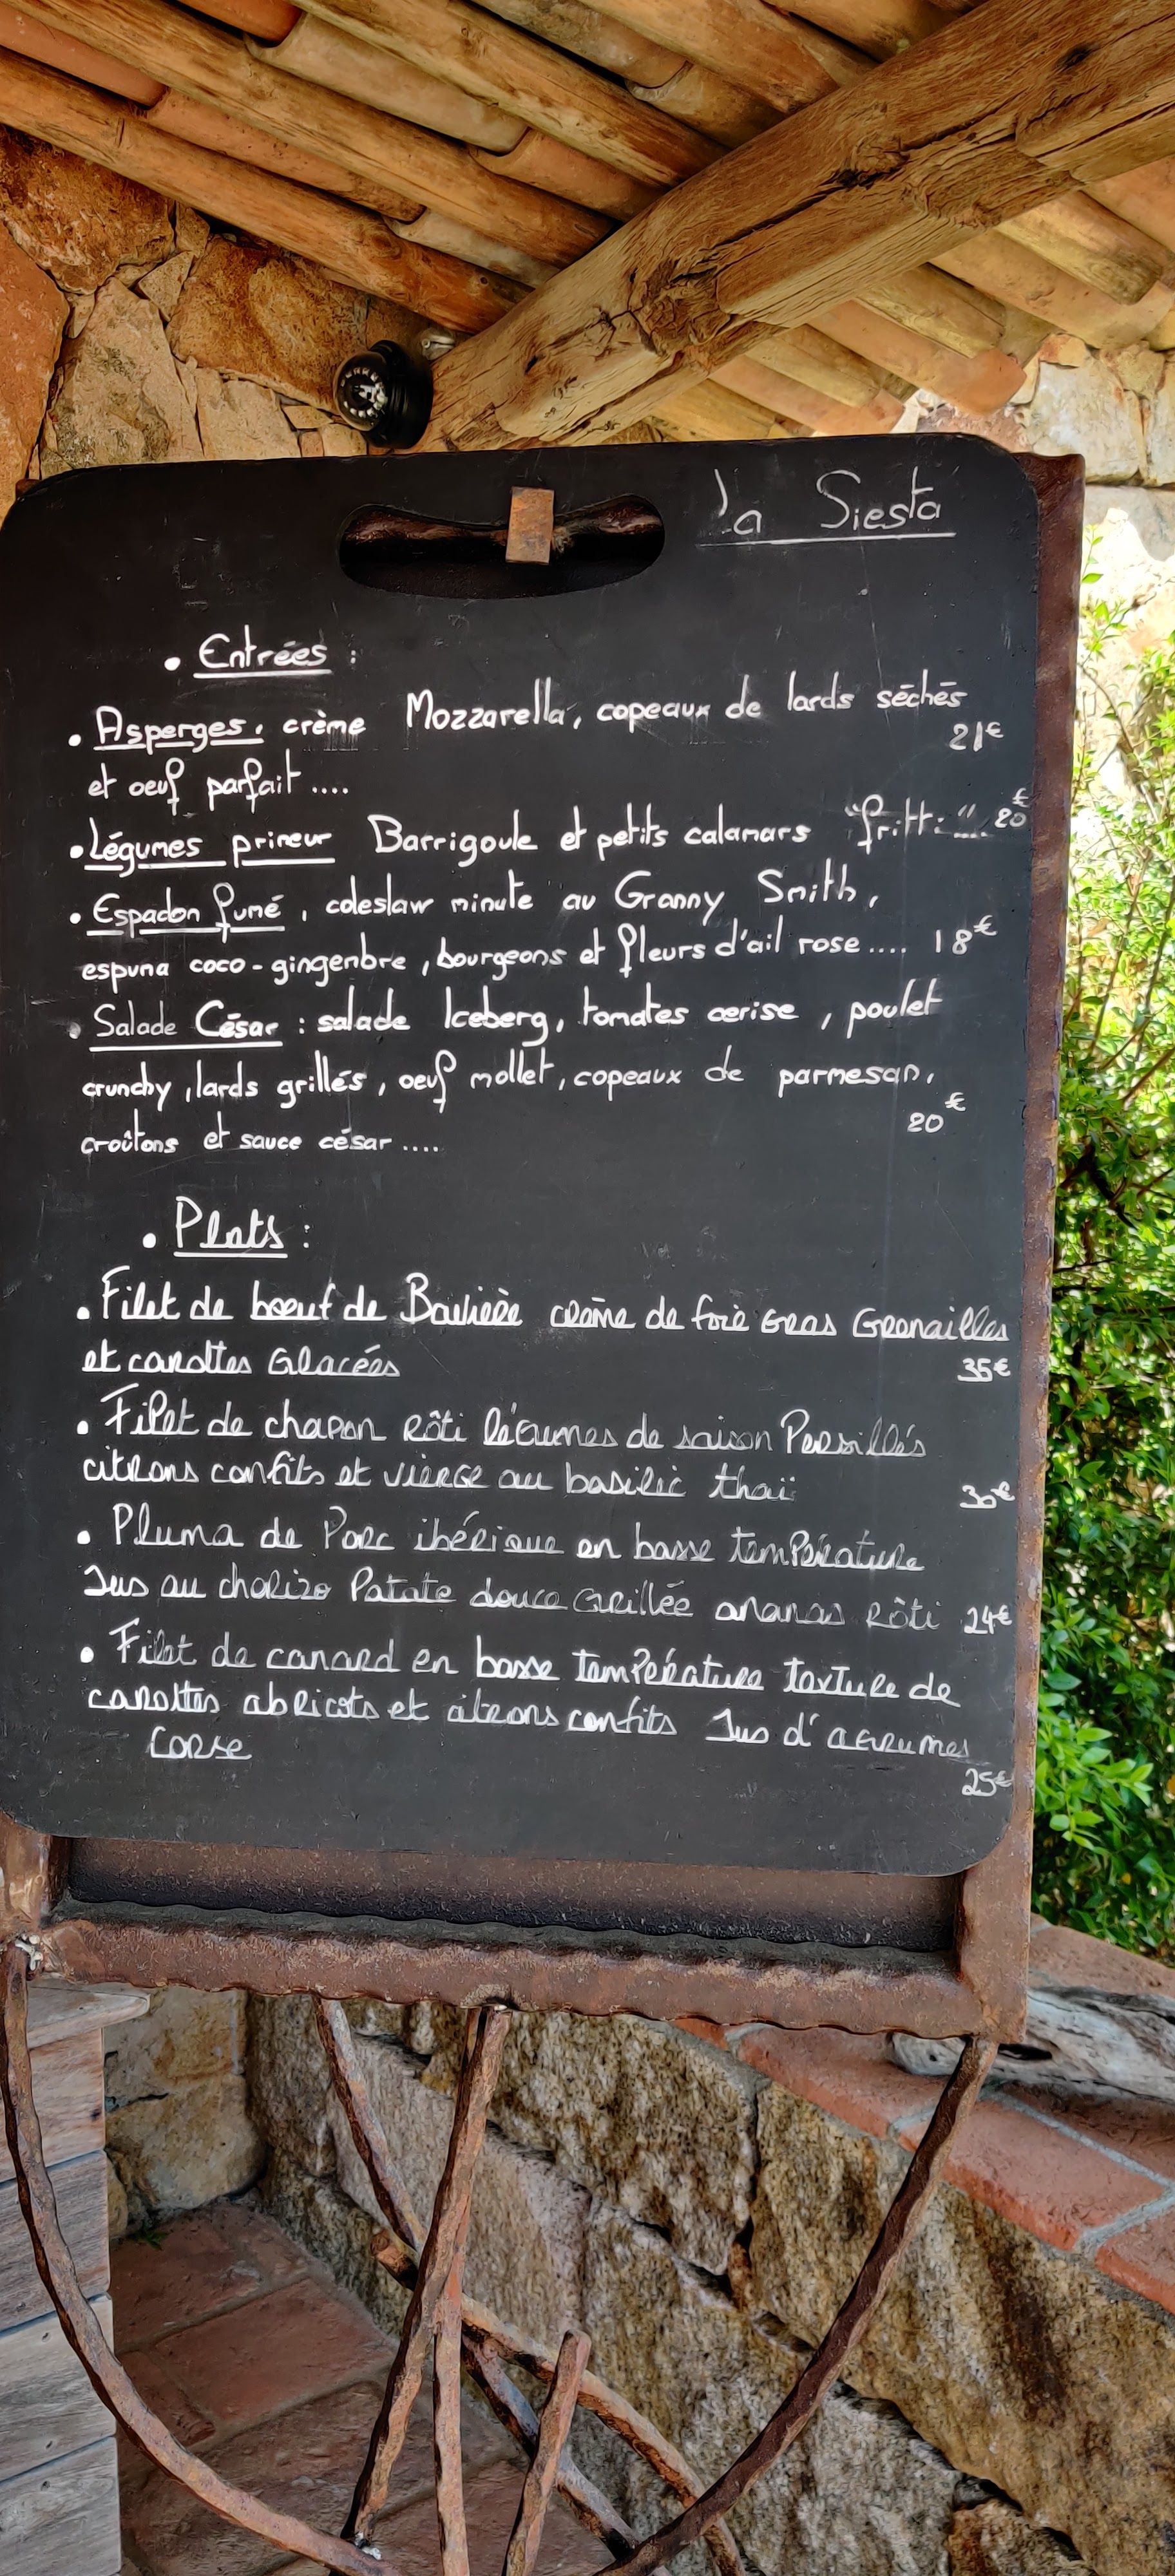 La Siesta
• Entrées :
• Asperges, crème Mozzarella, copeaux de lards séchés
21€
et oeuf parfait ....
• Légumes primeur Barrigoule et petits calamars "fritti".. 20€
• Espadon fumé, coleslaw minute au Granny Smith,
espuma coco-gingembre, bourgeons et fleurs d'ail rose .... 18€
• Salade César : salade Iceberg, tomates cerise, poulet
crunchy, lards grillés, oeuf mollet, copeaux de parmesan,
20€
croûtons et sauce césar ....
• Plats :
• Filet de boeuf de Bavière crème de foie gras Grenailles
et carottes Glacées 35€
• Filet de chapon rôti légumes de saison Persillés
citrons confits et vierge au basilic thaï 30€
• Pluma de Porc ibérique en basse température
Jus au chorizo Patate douce Grillée ananas rôti 24€
• Filet de canard en basse température texture de
carottes abricots et citrons confits Jus d'agrumes
Corse
25€